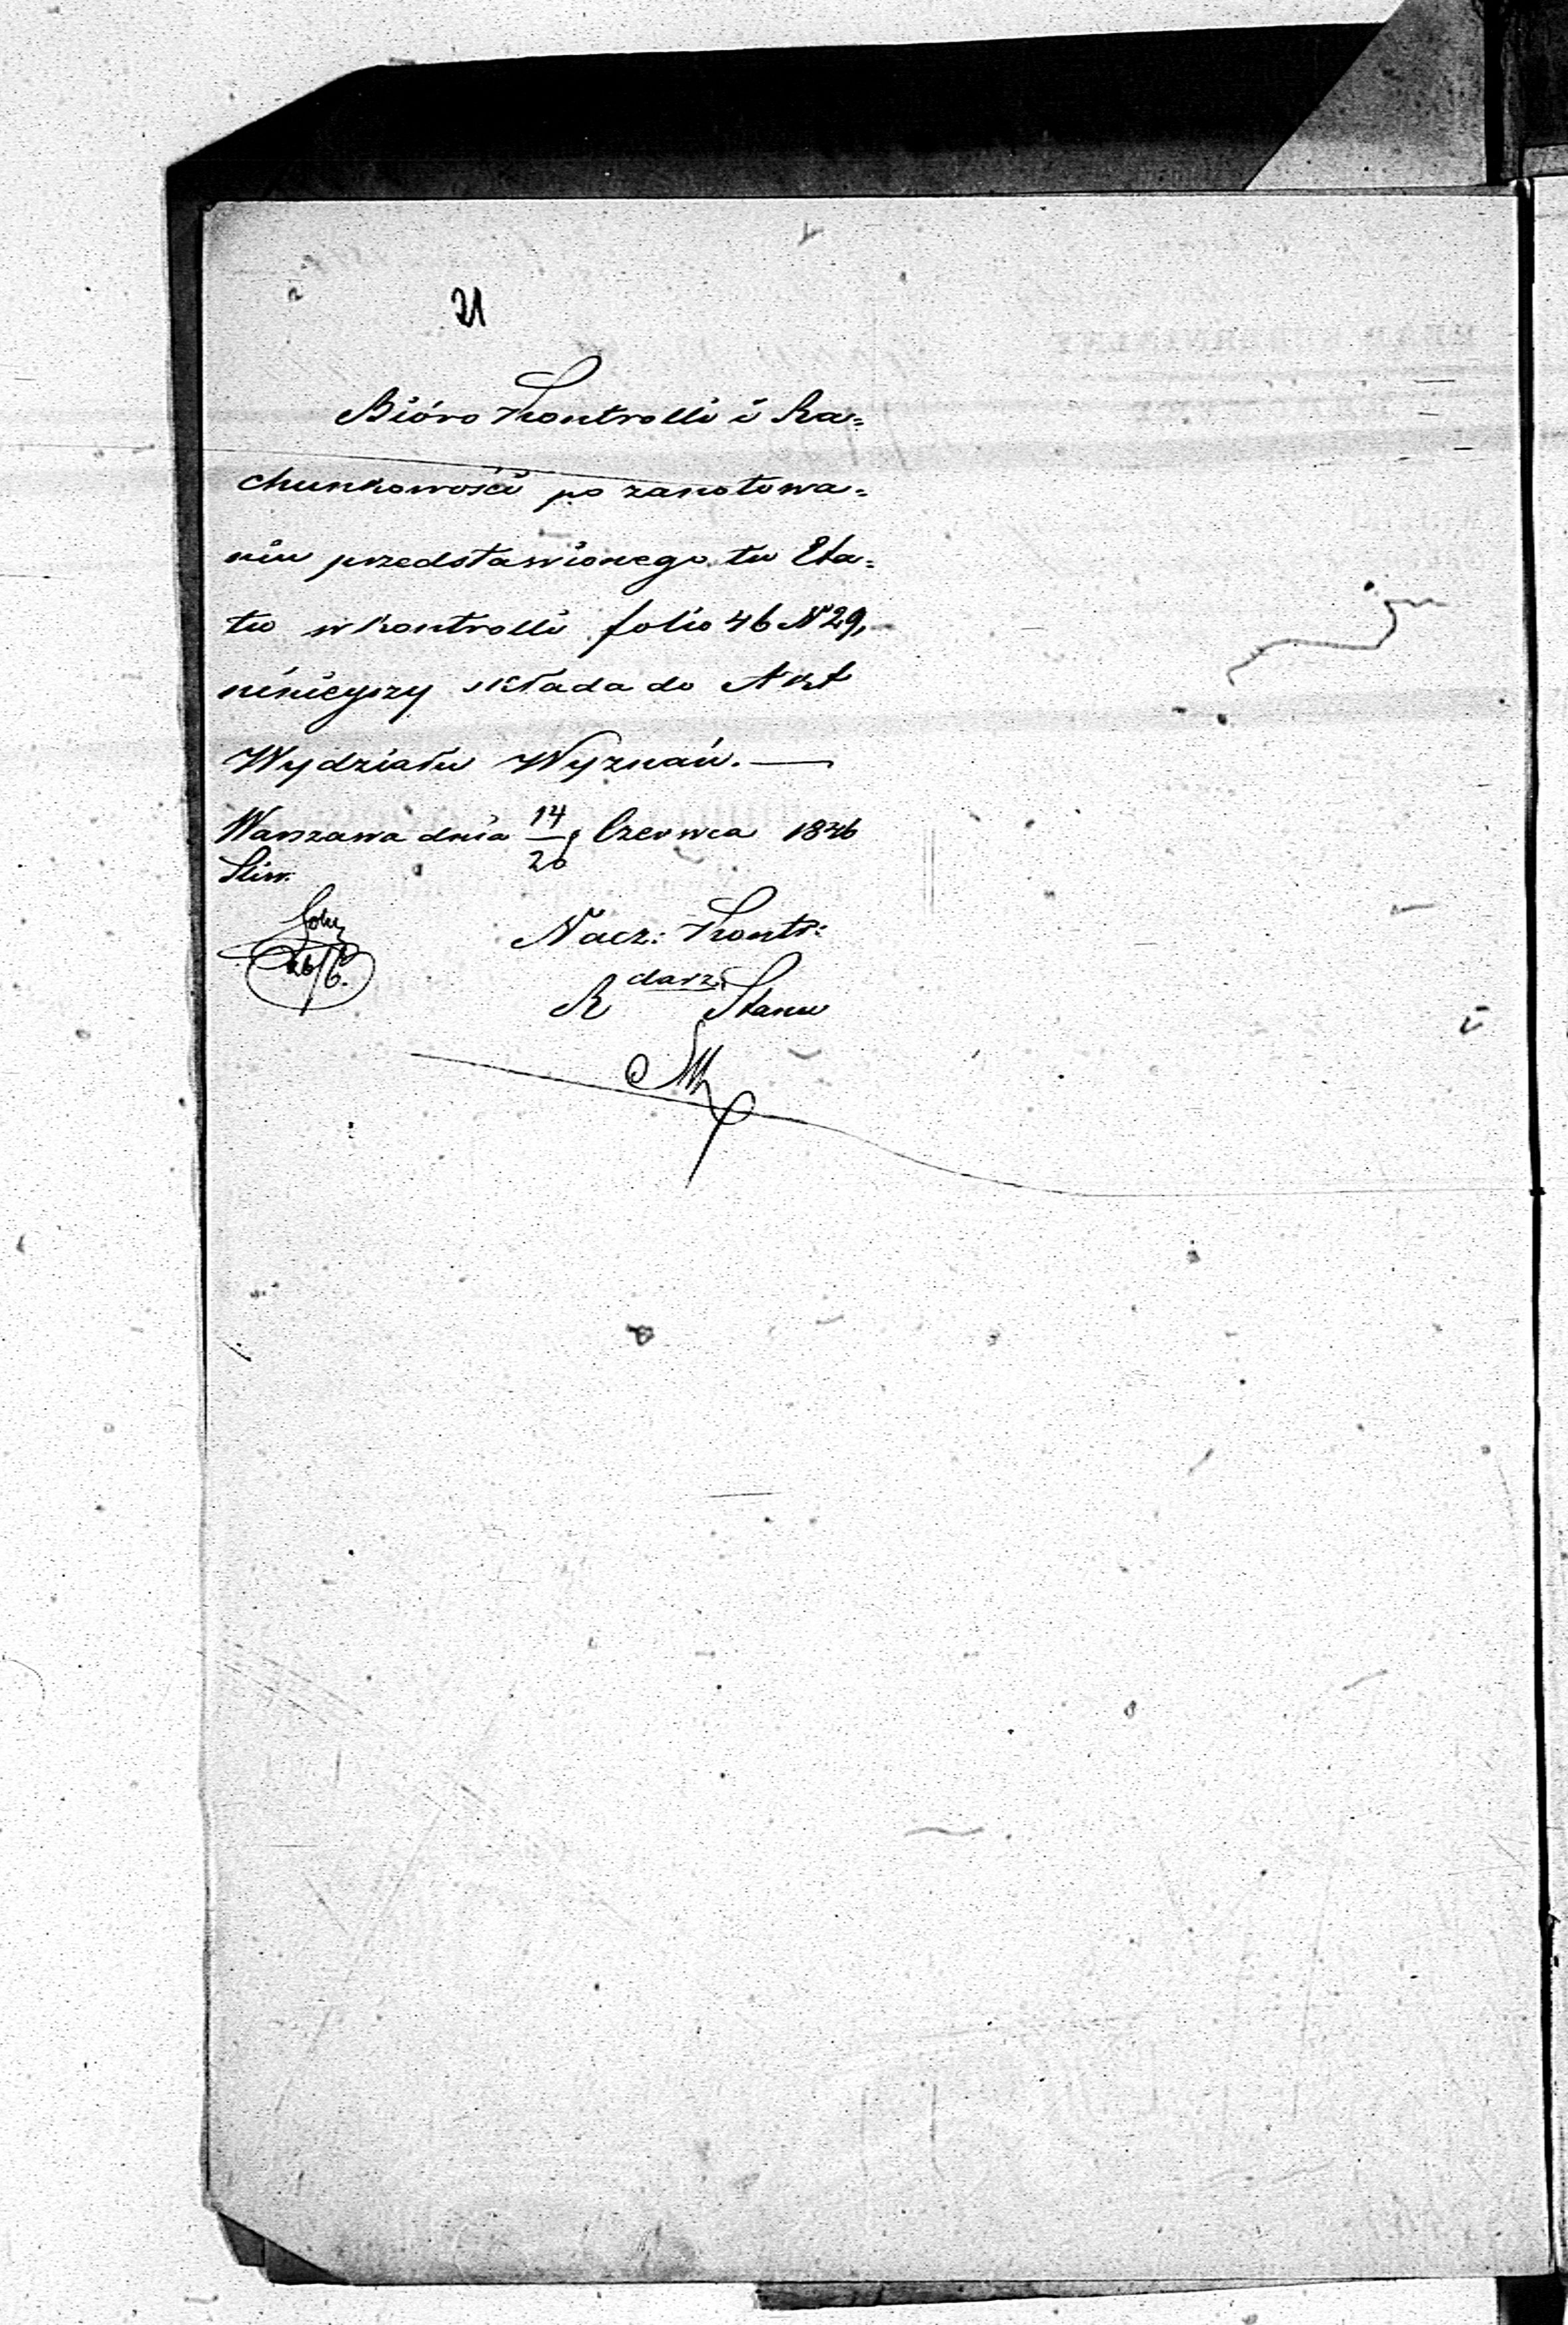 21
Bióro Kontrolli i Ra=
chunkowości po zanotowa=
niu przedstawionego tu Eta=
tu w kontrolli folio 46 N 29,
niniejszy składa do Akt
Wydziału Wyznań. —
Warszawa dnia 14/26 Czerwca 1846
Sliw:
26/6.
Nacz: Kontr:
R darz. Stanu